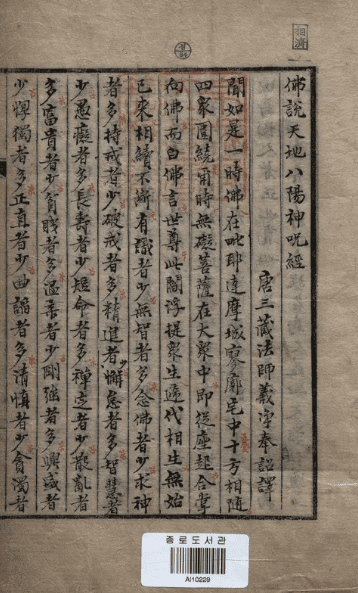 佛說天地八陽神呪經
唐三藏法師義淨奉詔譯
聞如是一時佛在毗耶達摩城寥廓宅中十方相隨
四衆圍繞爾時無礙菩薩在大衆中卽從座起合掌
向佛而白佛言世尊此閻浮提衆生遞代相生無始
已來相續不斷有識者少無智者多念佛者少求神
者多持戒者少破戒者多精進者少懈怠者多智慧者
少愚癡者多長壽者少短命者多禪定者少散亂者
多富貴者少貧賤者多溫柔者少剛强者多興盛者
少惸獨者多正直者少曲謟者多清愼者少貪濁者
종로도서관
AI10229